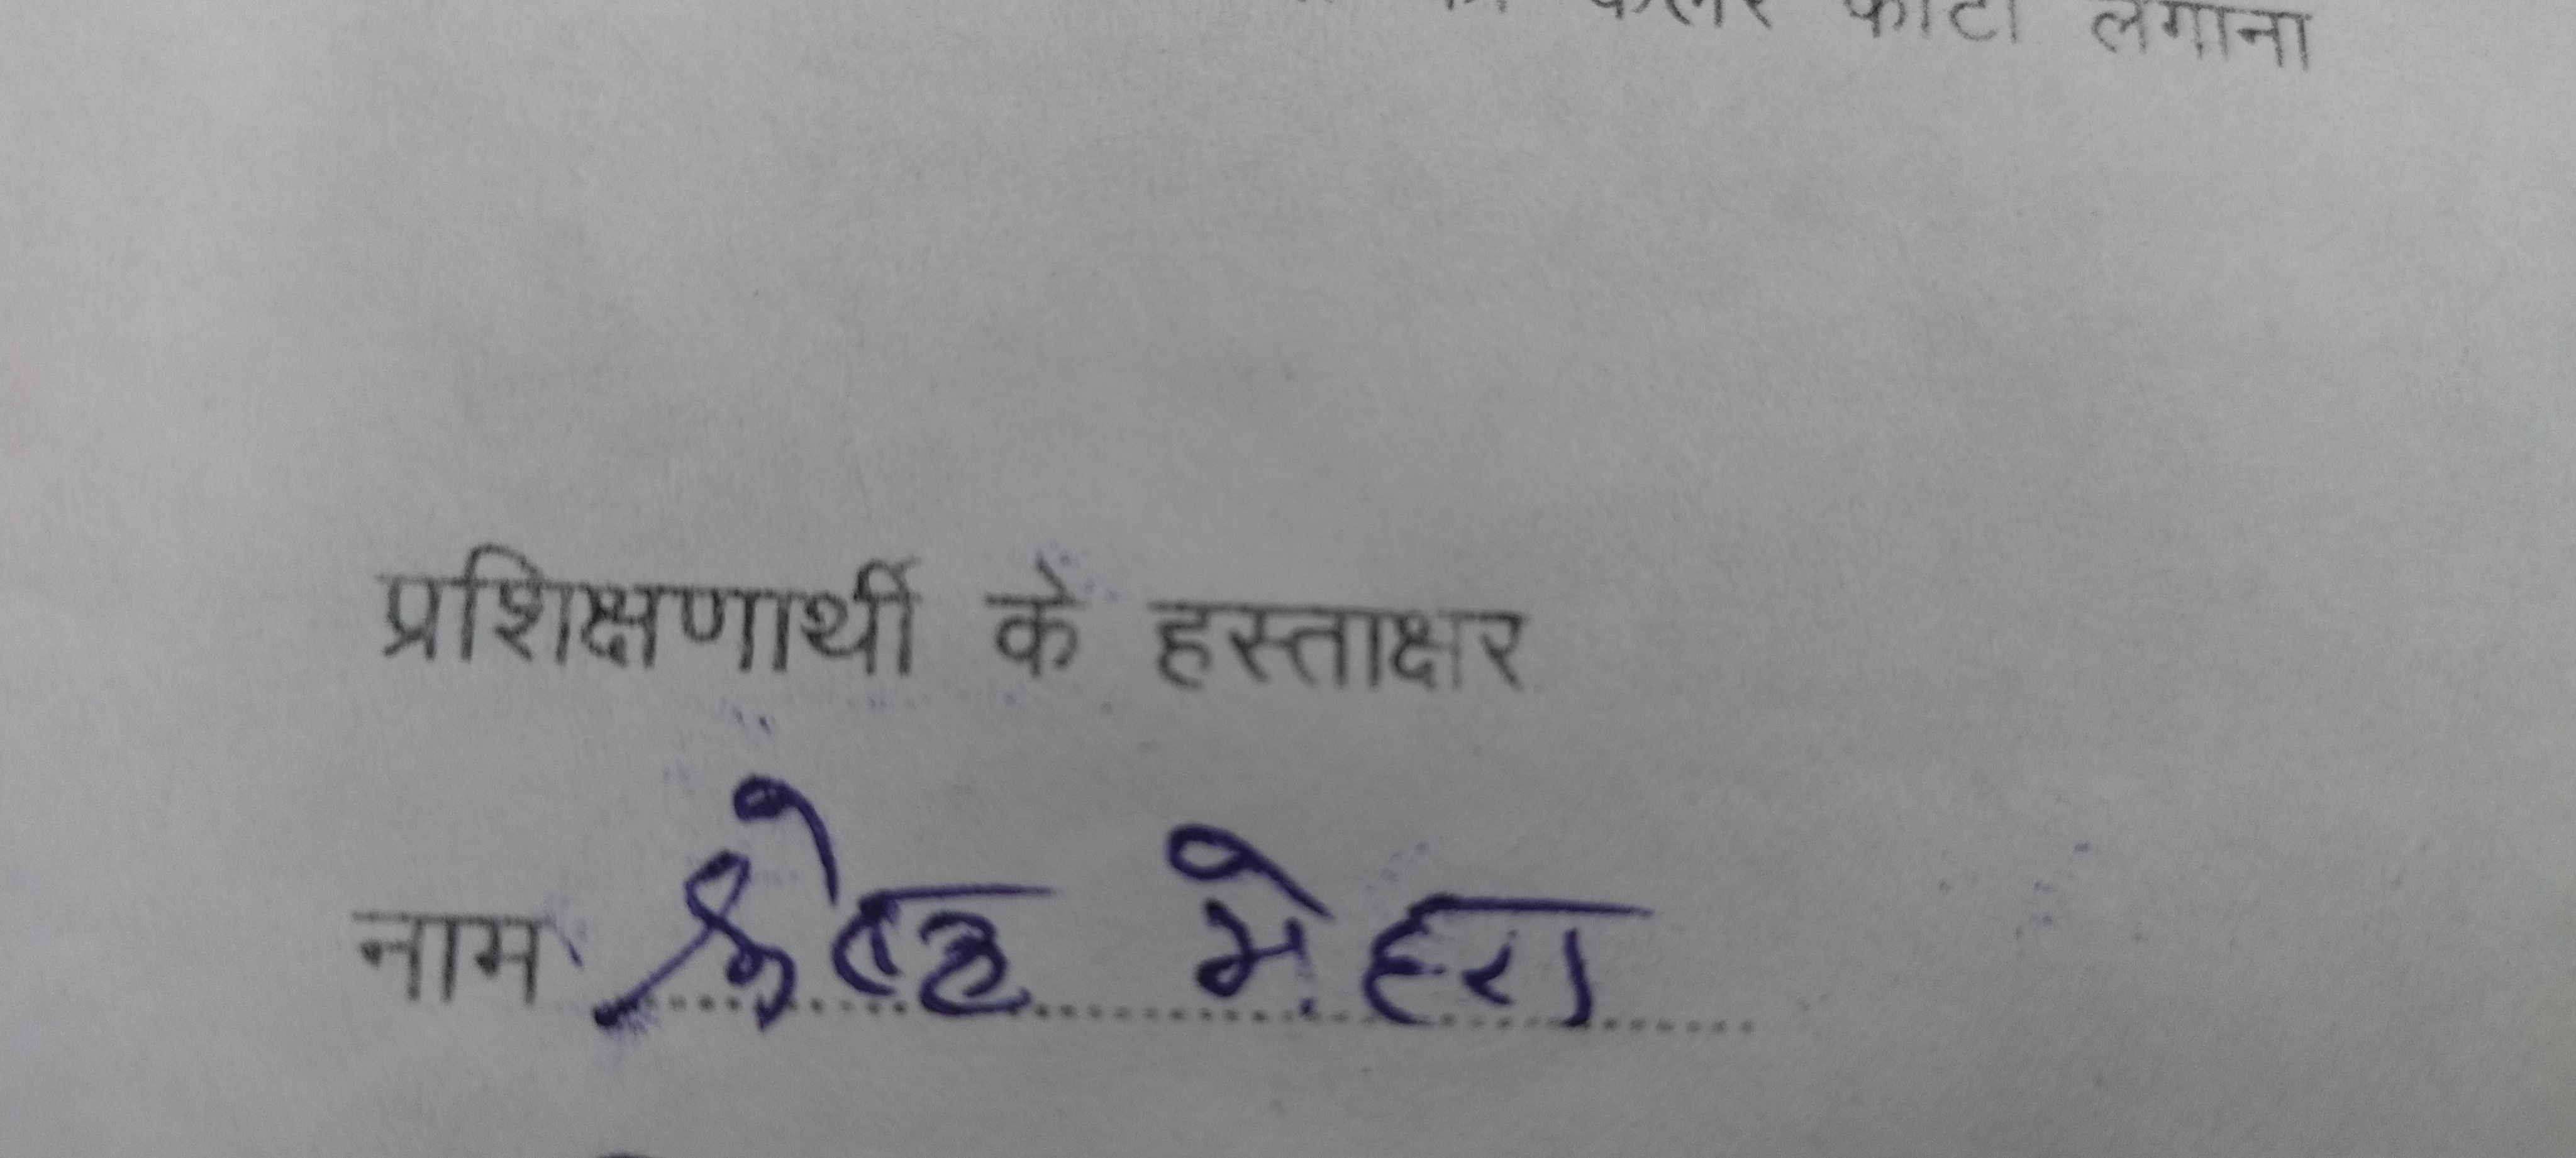 कलर फोटो लगाना
प्रशिक्षणार्थी के हस्ताक्षर
नाम मेहरा